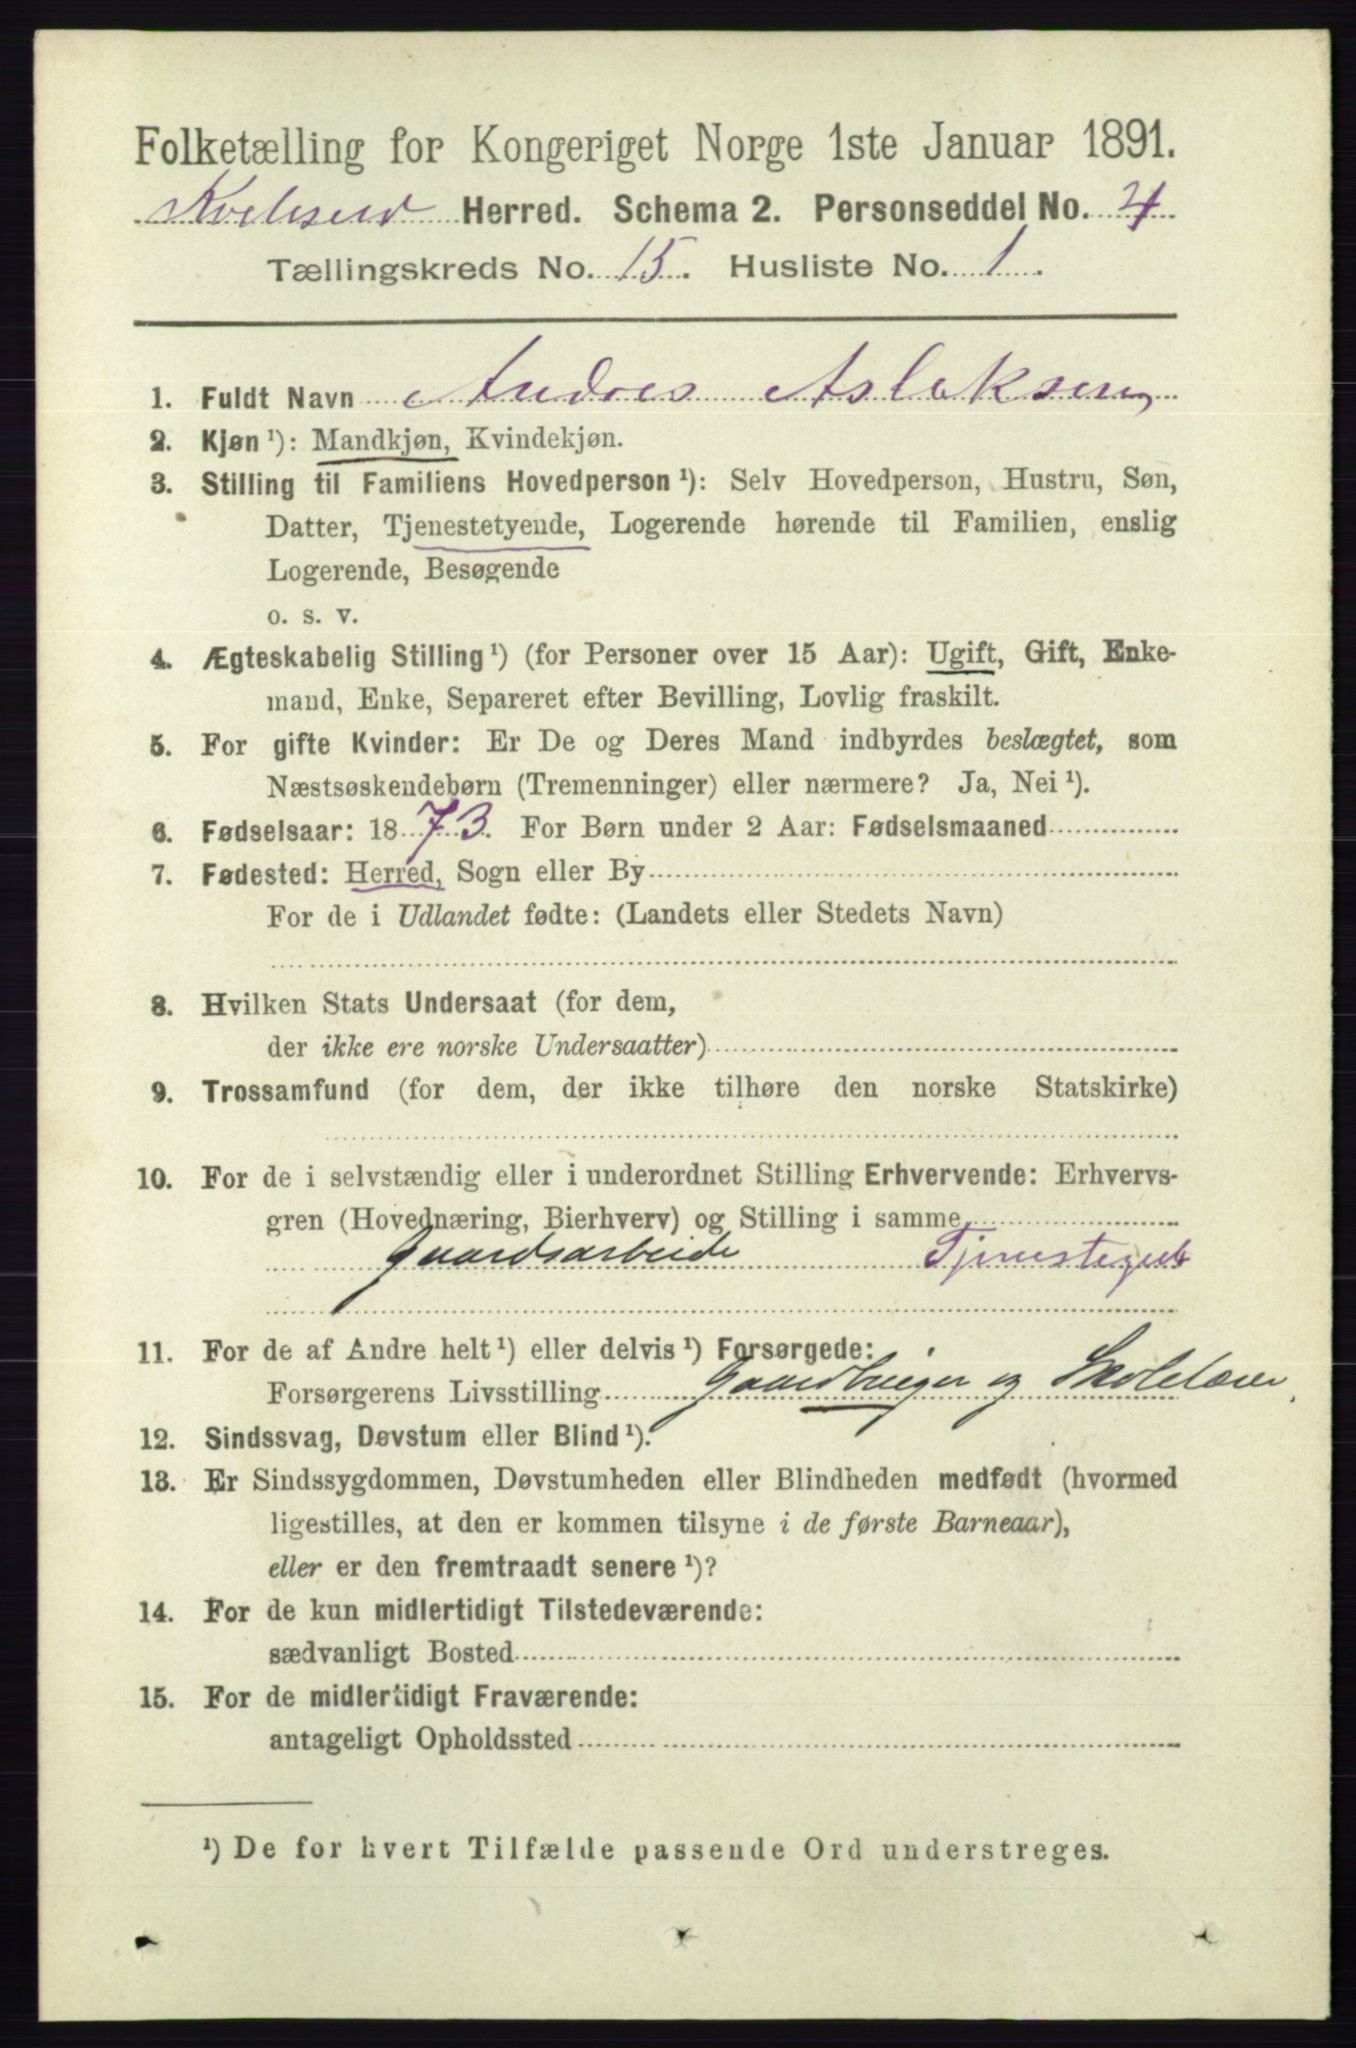 Folketælling for Kongeriget Norge 1ste Januar 1891.
Kviteseid Herred. Schema 2. Personseddel No. 4
Tællingskreds No. 15. Husliste No. 1.
1. Fuldt Navn Andres Asleksen
2. Kjøn ¹): Mandkjøn, Kvindekjøn.
3. Stilling til Familiens Hovedperson ¹): Selv Hovedperson, Hustru, Søn,
Datter, Tjenestetyende, Logerende hørende til Familien, enslig
Logerende, Besøgende
o. s. v.
4. Ægteskabelig Stilling ¹) (for Personer over 15 Aar): Ugift, Gift, Enke-
mand, Enke, Separeret efter Bevilling, Lovlig fraskilt.
5. For gifte Kvinder: Er De og Deres Mand indbyrdes beslægtet, som
Næstsøskendebørn (Tremenninger) eller nærmere? Ja, Nei ¹).
6. Fødselsaar: 1873. For Børn under 2 Aar: Fødselsmaaned
7. Fødested: Herred, Sogn eller By
For de i Udlandet fødte: (Landets eller Stedets Navn)
8. Hvilken Stats Undersaat (for dem,
der ikke ere norske Undersaatter)
9. Trossamfund (for dem, der ikke tilhøre den norske Statskirke)
10. For de i selvstændig eller i underordnet Stilling Erhvervende: Erhvervs-
gren (Hovednæring, Bierhverv) og Stilling i samme
Gaardsarbeide Tjenestegut
11. For de af Andre helt ¹) eller delvis ¹) Forsørgede:
Forsørgerens Livsstilling Gaardbruger og Skolelærer.
12. Sindssvag, Døvstum eller Blind ¹).
13. Er Sindssygdommen, Døvstumheden eller Blindheden medfødt (hvormed
ligestilles, at den er kommen tilsyne i de første Barneaar),
eller er den fremtraadt senere ¹)?
14. For de kun midlertidigt Tilstedeværende:
sædvanligt Bosted
15. For de midlertidigt Fraværende:
antageligt Opholdssted
¹) De for hvert Tilfælde passende Ord understreges.